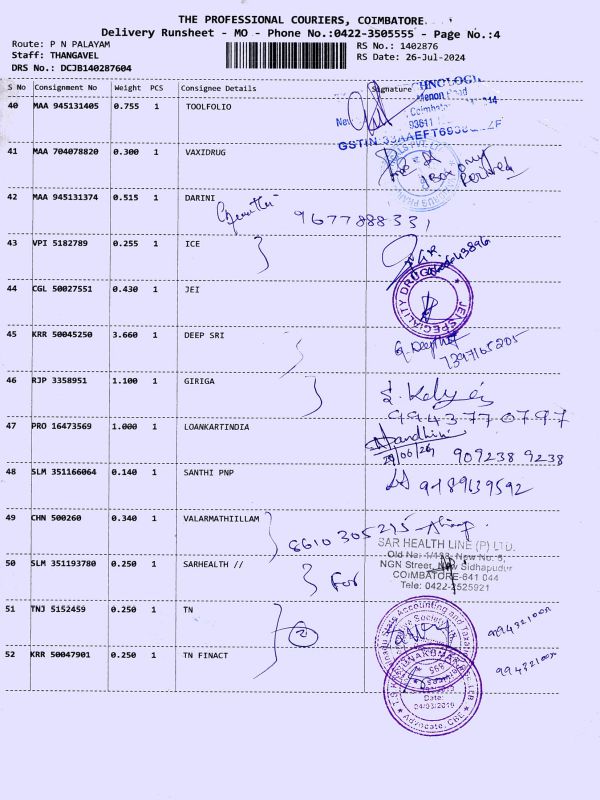 THE PROFESSIONAL COURIERS, COIMBATORE
Delivery Runsheet - MO - Phone No.:0422-3505555 - Page No.:4
Route: P N PALAYAM RS No.: 1402876
Staff: THANGAVEL RS Date: 26-Jul-2024
DRS No.: DCJB140287604
S No Consignment No Weight PCS Consignee Details Signature
40 MAA 945131405 0.755 1 TOOLFOLIO
Menon Road
41 MAA 704078820 0.300 1 VAXIDRUG
42 MAA 945131374 0.515 1 DARINI
9677888331
43 VPI 5182789 0.255 1 ICE
44 CGL 50027551 0.430 1 JEI
JEI SPECIALITY DRUG
45 KRR 50045250 3.660 1 DEEP SRI
7397165205
46 RJP 3358951 1.100 1 GIRIGA
9943770797
47 PRO 16473569 1.000 1 LOANKARTINDIA
Nandhini
909238 9238
48 SLM 351166064 0.140 1 SANTHI PNP
9789639592
49 CHN 500260 0.340 1 VALARMATHIILLAM
8610305275
SAR HEALTH LINE (P) LTD.
50 SLM 351193780 0.250 1 SARHEALTH //
For
NGN Street, New Sidhapudur
COIMBATORE-641 044
Tele: 0422-2525921
51 TNJ 5152459 0.250 1 TN
2
52 KRR 50047901 0.250 1 TN FINACT
Date:
04/03/2019
Advocate, CBE